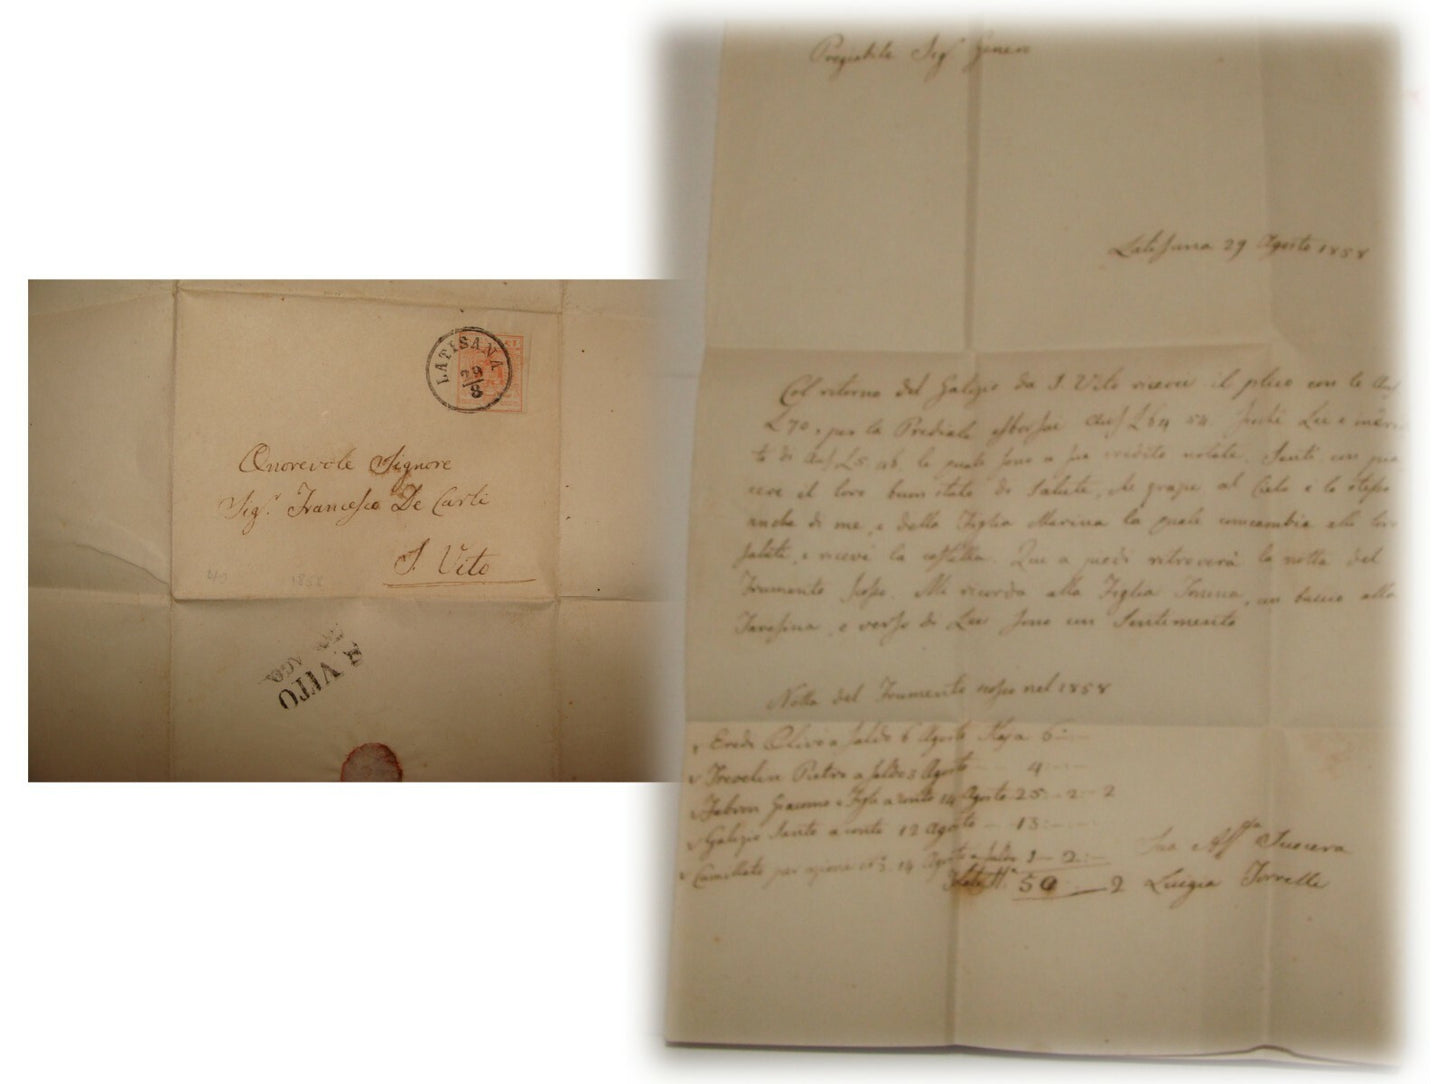 LATISANA
29
8
Onorevole Signore
Sig.r Francesco De Carli
S. Vito
1858
S. VITO
AGO.
Pregiabile Sig.r Genero
Latisana 29 Agosto 1858
Col ritorno del Galizio da S. Vito ricevei il plico con le
L 70, per la Prediale esborsai L 64 54. Lei è
te di L 5. 46, le quali sono a suo credito notate. Sentii con pia
cere il loro buon stato di salute, che grazie al Cielo è lo stesso
anche di me, e della Figlia Marina la quale contracambia alli loro
saluti, e ricevè la costella. Qui a piedi ritroverà la notta del
Frumento scosso. Mi ricordo alla Figlia un baccio alla
e verso di Lei sono con Sentimento
Notta del Frumento scosso nel 1858
Eredi Olivi a saldo 6 Agosto 6
Trevelin Pietro a saldo 3 Agosto 4
Giacomo e Figli a conto 14 Agosto 25 - 2 - 2
Galizio Santo a conto 12 Agosto 13
per 14 Agosto a saldo 1 - 2
50 2
Sua Aff.ma Suocera
Luigia Torrelli